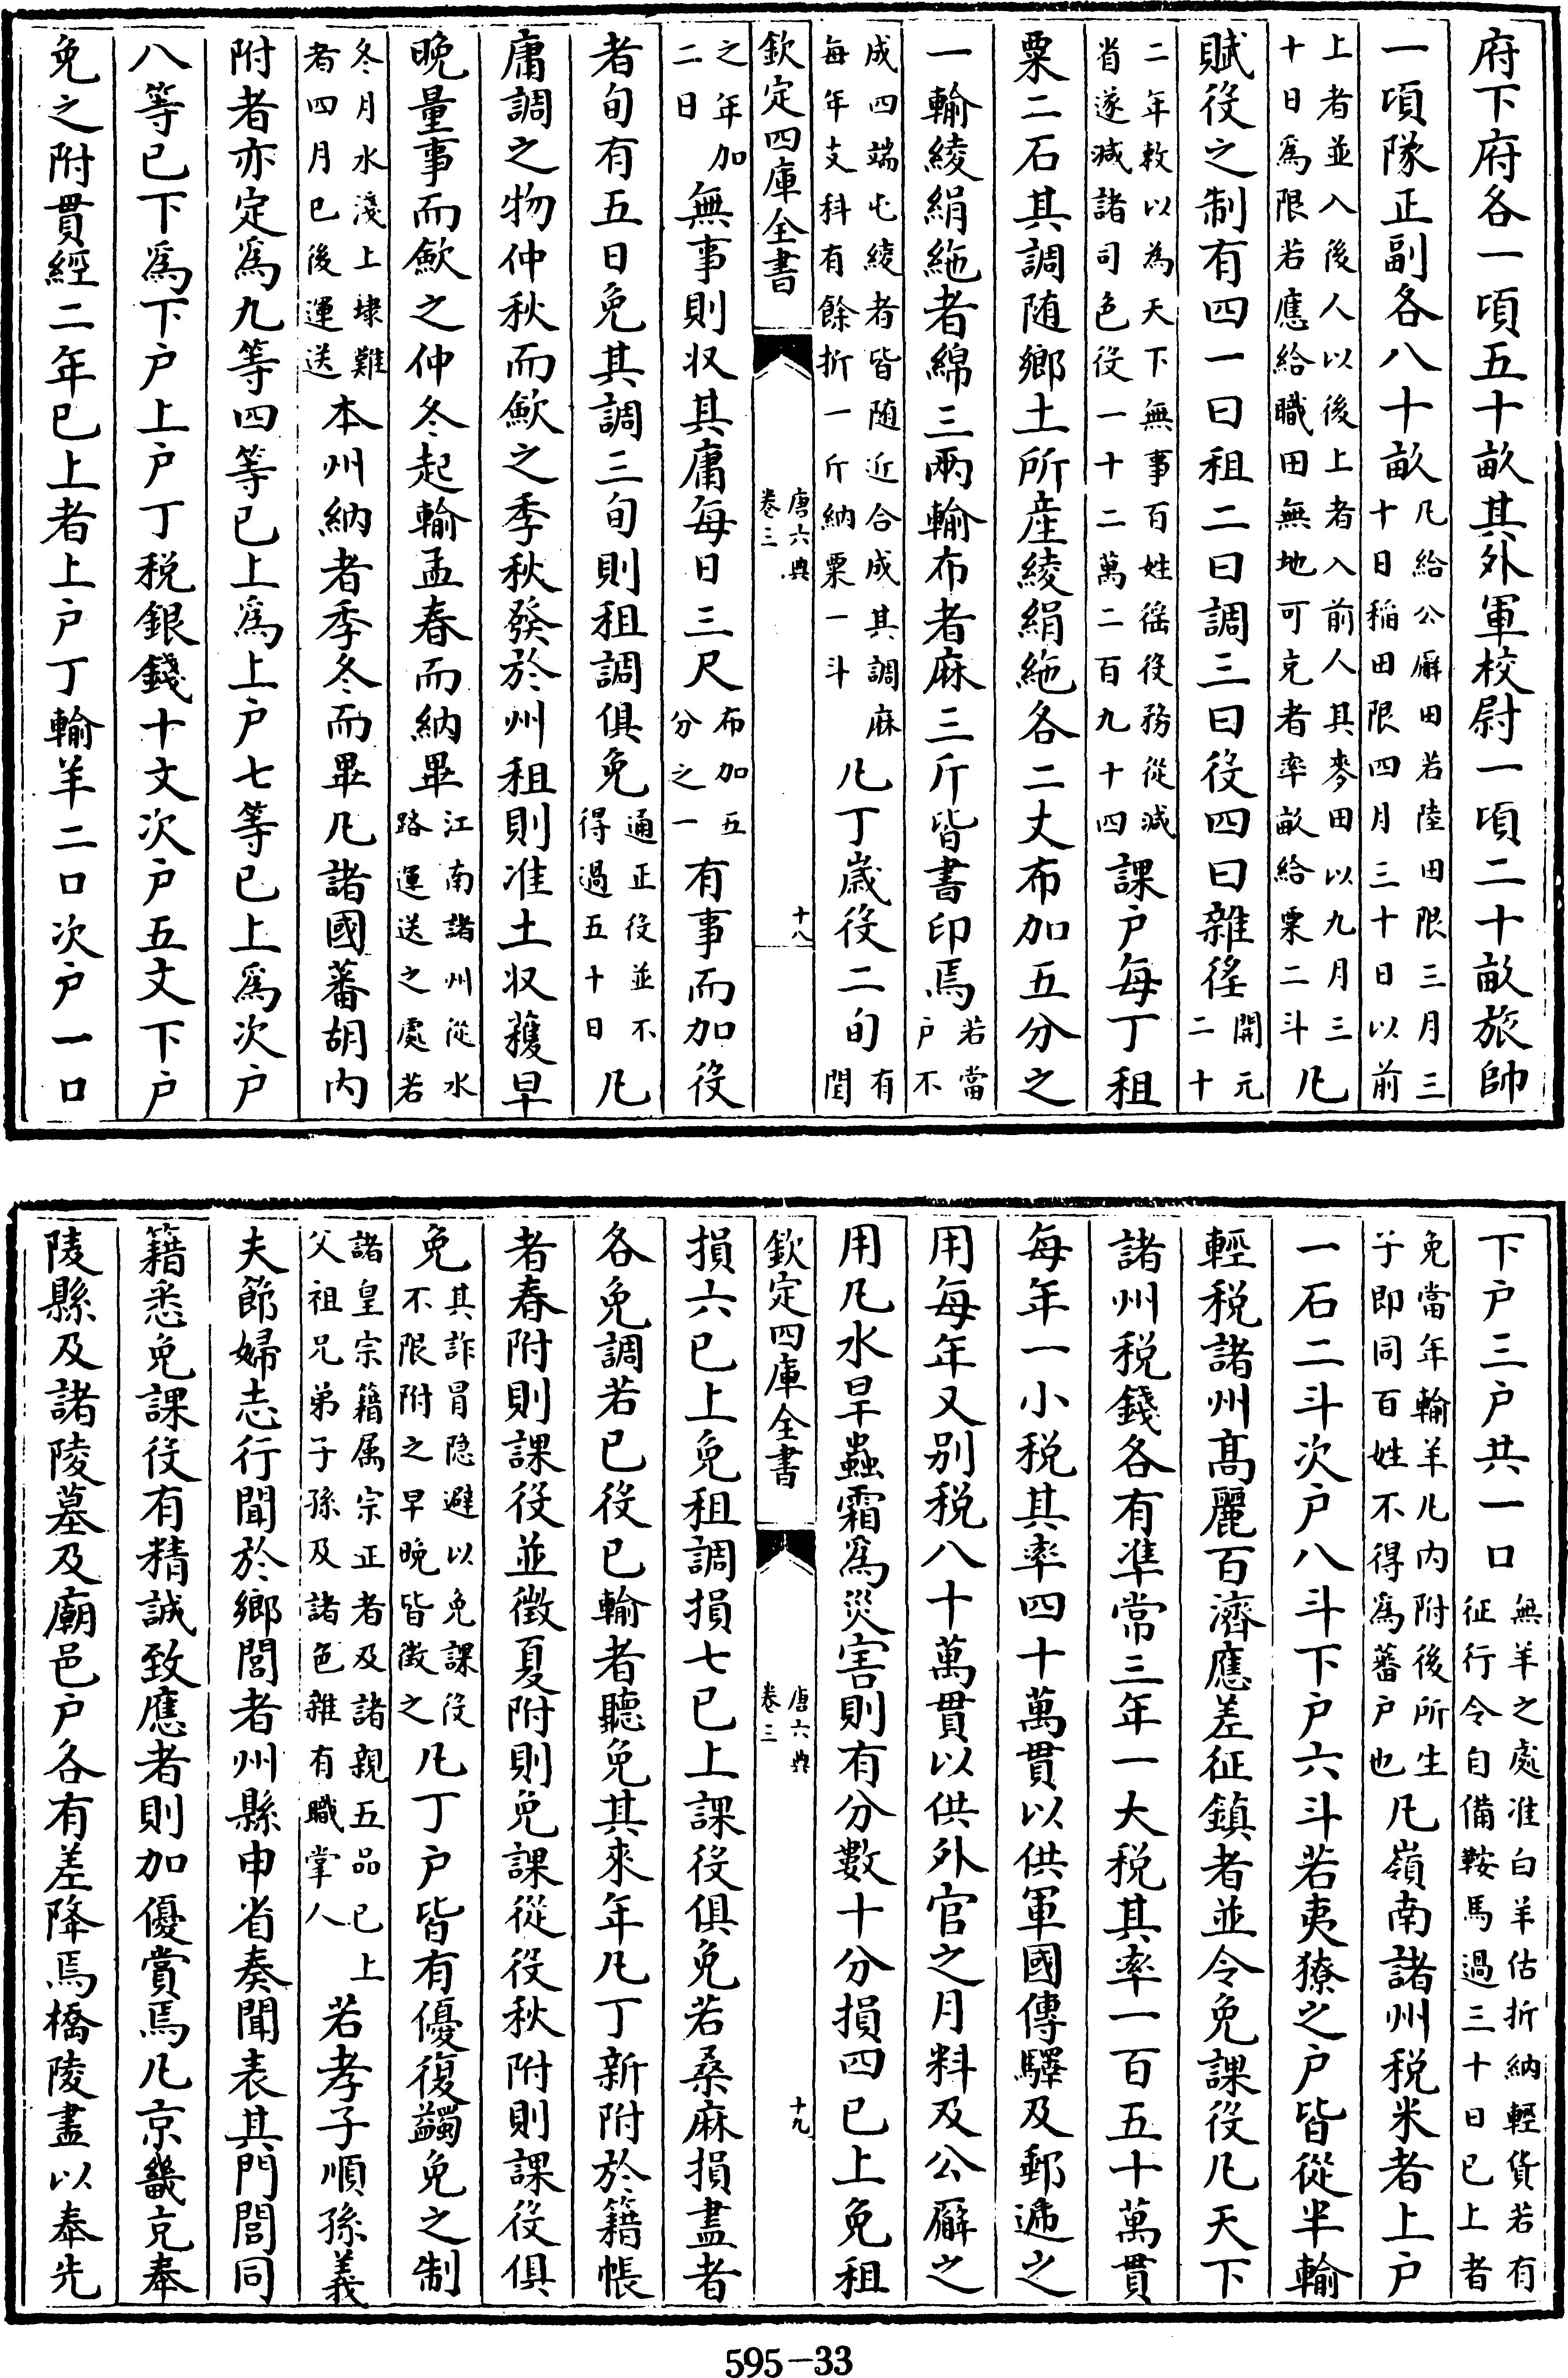 府下府各一頃五十畝其外軍校尉一頃二十畝旅帥
一頃隊正副各八十畝凡給公廨田若陸田限三月三十日稲田限四月三十日以前
上者並入後人以後上者入前人其麥田以九月三十日爲限若應給職田無地可充者率畝給粟二斗凡
賦役之制有四一曰租二曰調三曰役四曰雜徭開元二十
二年敕以為天下無事百姓徭役務從減省遂減諸司色役一十二萬二百九十四課户每丁租
粟二石其調随鄉土所産綾絹絁各二丈布加五分之
一輸綾絹絁者綿三兩輸布者麻三斤皆書印焉若當户不
成四端屯綾者皆随近合成其調麻每年支科有餘折一斤納粟一斗凡丁歲役二旬有閏
欽定四庫全書 唐六典 卷三 十八
之年加二日無事則収其庸每日三尺布加五分之一有事而加役
者旬有五日免其調三旬則租調俱免通正役並不得過五十日凡
庸調之物仲秋而歛之季秋發於州租則准土収穫早
晚量事而歛之仲冬起輸孟春而納畢江南諸州從水路運送之處若
冬月水淺上埭難者四月已後運送本州納者季冬而畢凡諸國蕃胡内
附者亦定爲九等四等已上爲上户七等已上爲次户
八等已下爲下户上户丁税銀錢十文次户五文下户
免之附貫經二年已上者上户丁輸羊二口次户一口
下户三户共一口無羊之處准白羊估折納輕貨若有征行令自備鞍馬過三十日已上者
免當年輸羊凡内附後所生子即同百姓不得爲蕃户也凡嶺南諸州税米者上户
一石二斗次户八斗下户六斗若夷獠之户皆從半輸
輕税諸州髙麗百濟應差征鎮者並令免課役凡天下
諸州税錢各有凖常三年一大税其率一百五十萬貫
每年一小税其率四十萬貫以供軍國傳驛及郵遞之
用每年又别税八十萬貫以供外官之月料及公廨之
用凡水旱蟲霜爲災害則有分數十分損四已上免租
欽定四庫全書 唐六典 卷三 十九
損六已上免租調損七已上課役俱免若桑麻損盡者
各免調若已役已輸者聽免其來年凡丁新附於籍帳
者春附則課役並徵夏附則免課從役秋附則課役俱
免其詐冒隐避以免課役不限附之早晚皆徵之凡丁户皆有優復蠲免之制
諸皇宗籍属宗正者及諸親五品已上父祖兄弟子孫及諸色雜有職掌人若孝子順孫義
夫節婦志行聞於鄉閭者州縣申省奏聞表其門閭同
籍悉免課役有精誠致應者則加優賞焉凡京畿充奉
陵縣及諸陵墓及廟邑户各有差降焉橋陵盡以奉先
595-33